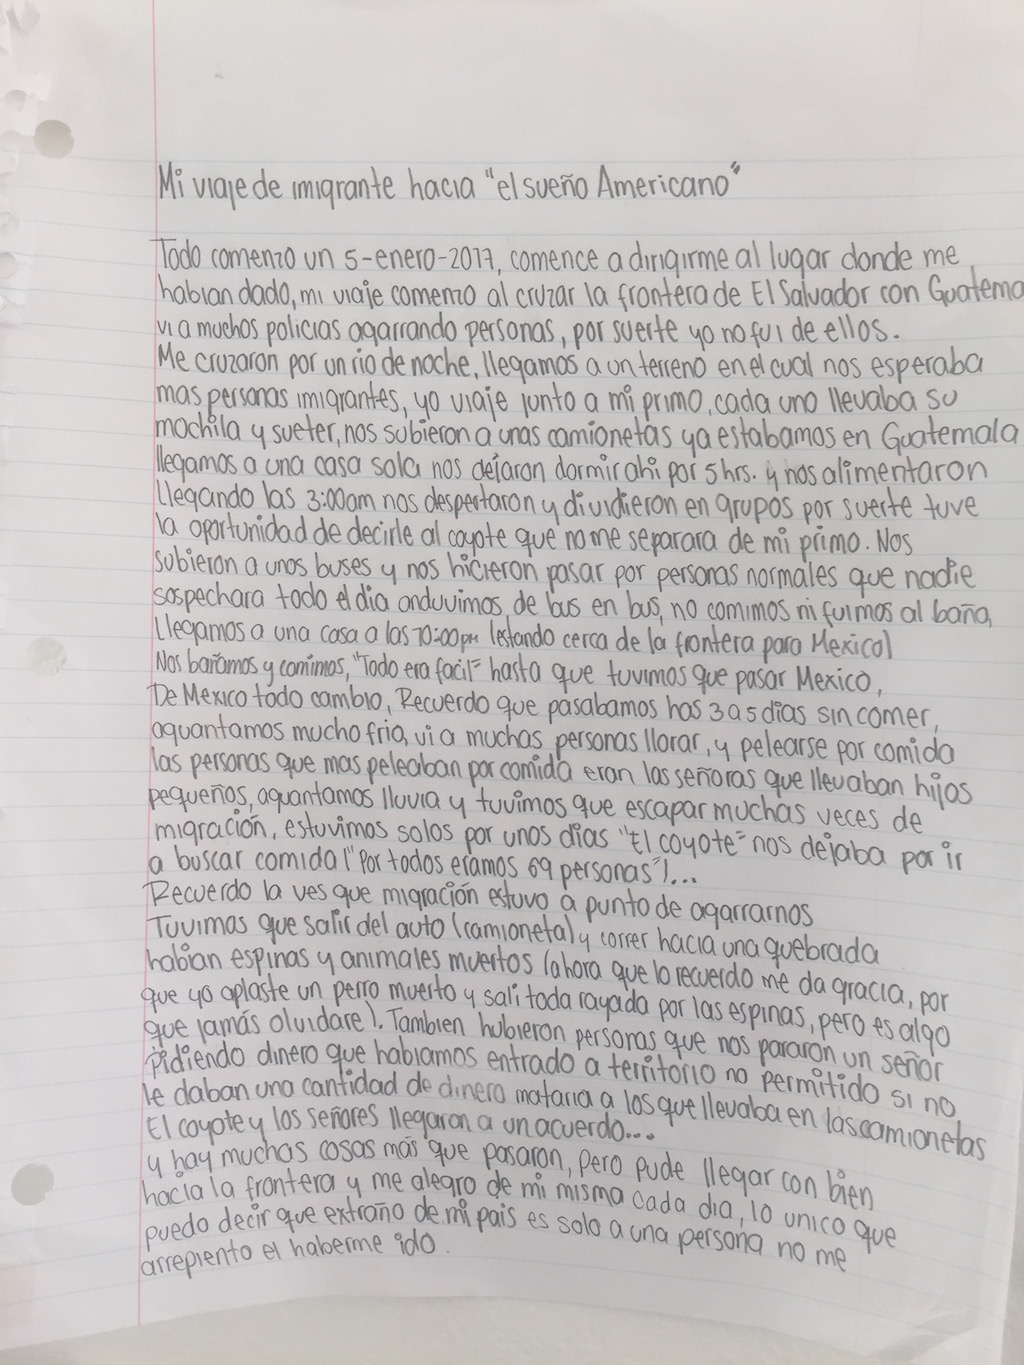 Mi viaje de imigrante hacia "el sueño Americano"
Todo comenzo un 5-enero-2017, comence a dirigirme al lugar donde me
habian dado, mi viaje comenzo al cruzar la frontera de El Salvador con Guatema
vi a muchos policias agarrando personas, por suerte yo no fui de ellos.
Me cruzaron por un rio de noche, llegamos a un terreno en el cual nos esperaba
mas personas imigrantes, yo viaje junto a mi primo, cada uno llevaba su
mochila y sueter, nos subieron a unas camionetas ya estabamos en Guatemala
llegamos a una casa sola nos dejaron dormir ahi por 5 hrs. y nos alimentaron
Llegando las 3:00am nos despertaron y dividieron en grupos por suerte tuve
la oportunidad de decirle al coyote que no me separara de mi primo. Nos
subieron a unos buses y nos hicieron pasar por personas normales que nadie
sospechara todo el dia anduvimos de bus en bus, no comimos ni fuimos al baño,
Llegamos a una casa a las 10:00pm (estando cerca de la frontera para Mexico)
Nos bañamos y comimos, "Todo era facil" hasta que tuvimos que pasar Mexico,
De Mexico todo cambio, Recuerdo que pasabamos has 3 a 5 dias sin comer,
aguantamos mucho frio, vi a muchas personas llorar, y pelearse por comida
las personas que mas peleaban por comida eran las señoras que llevaban hijos
pequeños, aguantamos lluvia y tuvimos que escapar muchas veces de
migración, estuvimos solos por unos dias "El coyote" nos dejaba por ir
a buscar comida ("Por todos eramos 69 personas")...
Recuerdo la ves que migración estuvo a punto de agarrarnos
Tuvimos que salir del auto (camioneta) y correr hacia una quebrada
habian espinas y animales muertos (ahora que lo recuerdo me da gracia, por
que yo aplaste un perro muerto y sali toda rayada por las espinas, pero es algo
que jamás olvidare). Tambien hubieron personas que nos pararon un señor
Pidiendo dinero que habiamos entrado a territorio no permitido si no
le daban una cantidad de dinero mataria a los que llevaba en las camionetas
El coyote y los señores llegaron a un acuerdo...
y hay muchas cosas más que pasaron, pero pude llegar con bien
hacia la frontera y me alegro de mi misma cada dia, lo unico que
puedo decir que extraño de mi pais es solo a una persona no me
arrepiento el haberme ido.